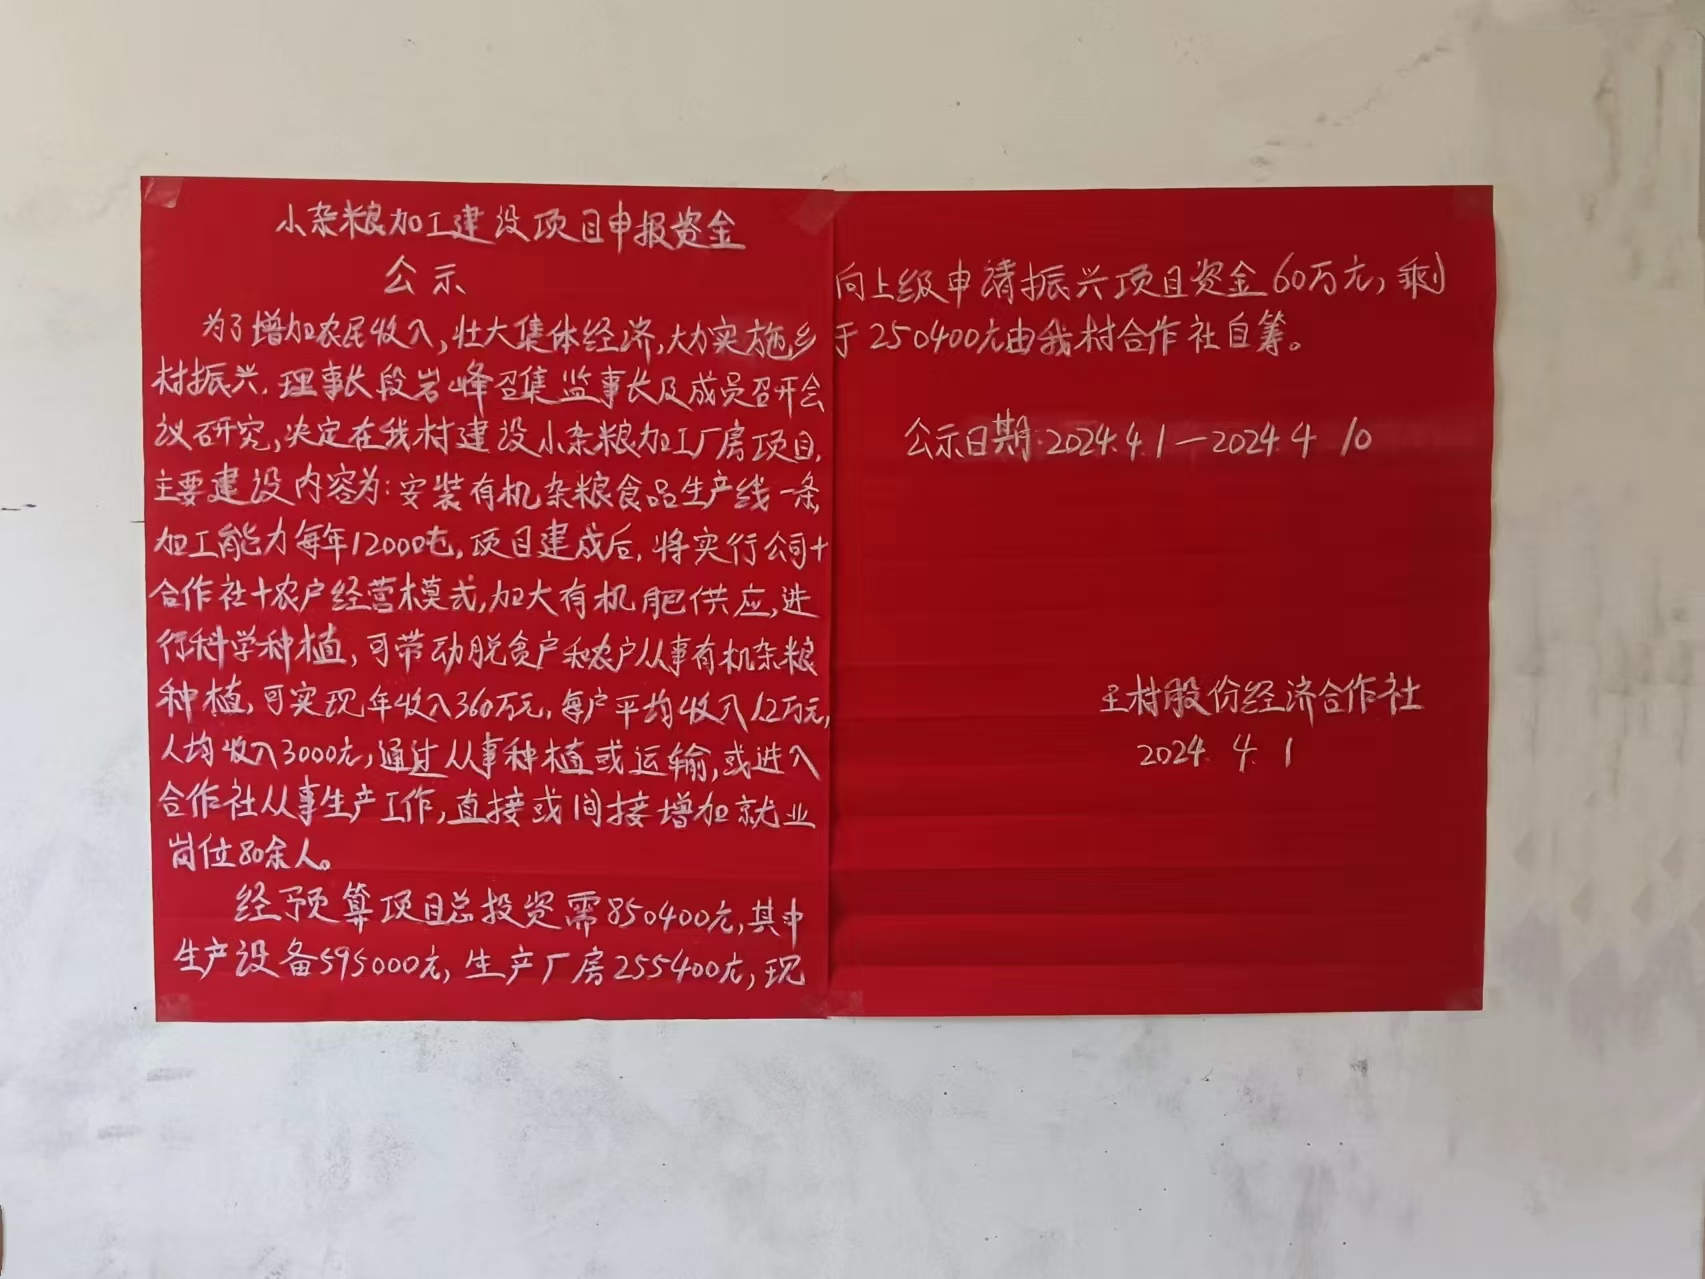 小杂粮加工建设项目申报资金
公示
为了增加农民收入,壮大集体经济,大力实施乡
村振兴.理事长段岩峰召集监事长及成员召开会
议研究,决定在我村建设小杂粮加工厂房项目.
主要建设内容为:安装有机杂粮食品生产线一条,
加工能力每年12000吨,项目建成后,将实行公司+
合作社+农户经营模式,加大有机肥供应,进
行科学种植,可带动脱贫户和农户从事有机杂粮
种植,可实现年收入360万元,每户平均收入1.2万元,
人均收入3000元,通过从事种植或运输,或进入
合作社从事生产工作,直接或间接增加就业
岗位80余人。
经予预算项目总投资需850400元,其中
生产设备595000元,生产厂房255400元,现
向上级申请振兴项目资金60万元,剩
于250400元由我村合作社自筹。
公示日期:2024.4.1—2024.4 10
王村股份经济合作社
2024. 4. 1